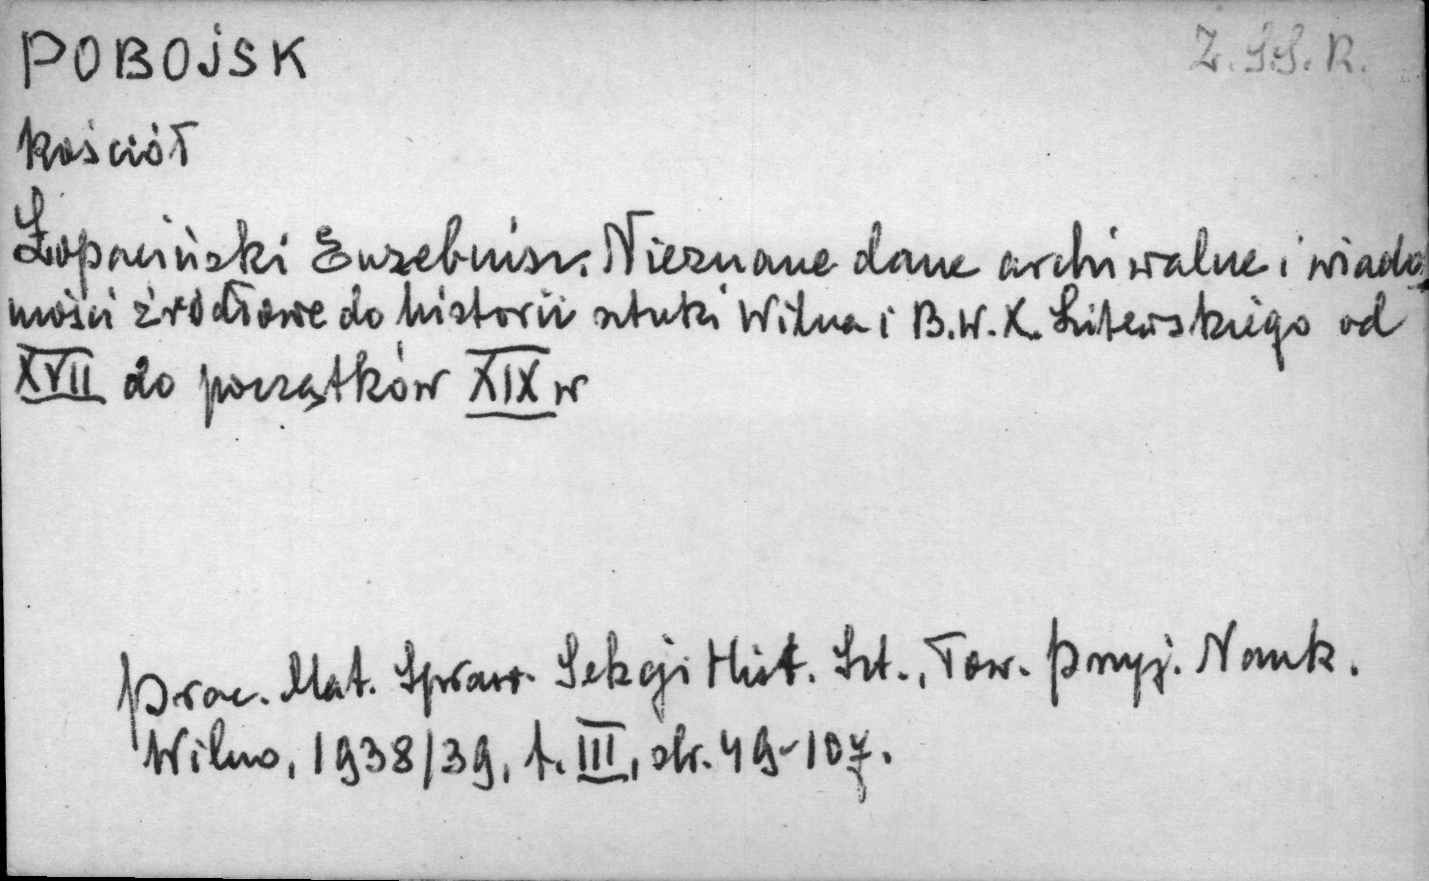 POBOJSK
Z.SS.R.
kościół
Łopaciński Euzebiusz. Nieznane dane archiwalne i wiado
mości źródłowe do historii sztuki Wilna i B.W.X. Litewskiego od
XVII do początków XIX w
Prac. Mat. Spraw. Sekcji Hist. Szt., Tow. Przyj. Nauk.
Wilno, 1938/39, t. III, str. 49-107.